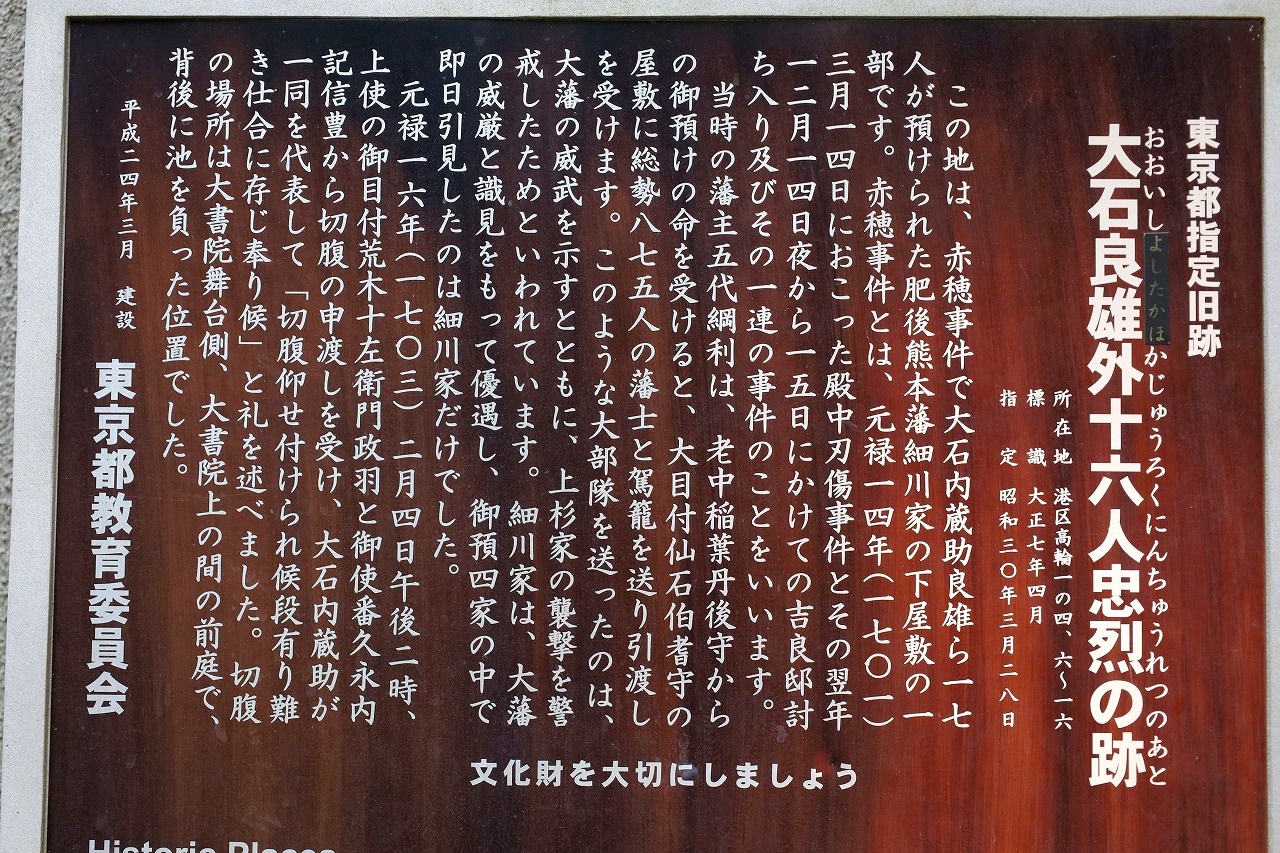 東京都指定旧跡
おおいしよしたかほかじゅうろくにんちゅうれつのあと
大石良雄外十六人忠烈の跡
所在地 港区高輪一の四、六～一六
標識 大正七年四月
指定 昭和三〇年三月二八日
この地は、赤穂事件で大石内蔵助良雄ら一七
人が預けられた肥後熊本藩細川家の下屋敷の一
部です。赤穂事件とは、元禄一四年(一七〇一)
三月一四日におこった殿中刃傷事件とその翌年
一二月一四日夜から一五日にかけての吉良邸討
ち入り及びその一連の事件のことをいいます。
当時の藩主五代綱利は、老中稲葉丹後守から
の御預けの命を受けると、大目付仙石伯耆守の
屋敷に総勢八七五人の藩士と駕籠を送り引渡し
を受けます。このような大部隊を送ったのは、
大藩の威武を示すとともに、上杉家の襲撃を警
戒したためといわれています。細川家は、大藩
の威厳と識見をもって優遇し、御預四家の中で
即日引見したのは細川家だけでした。
元禄一六年(一七〇三)二月四日午後二時、
上使の御目付荒木十左衛門政羽と御使番久永内
記信豊から切腹の申渡しを受け、大石内蔵助が
一同を代表して「切腹仰せ付けられ候段有り難
き仕合に存じ奉り候」と礼を述べました。切腹
の場所は大書院舞台側、大書院上の間の前庭で、
背後に池を負った位置でした。
平成二四年三月 建設
東京都教育委員会
文化財を大切にしましょう
Historic Places